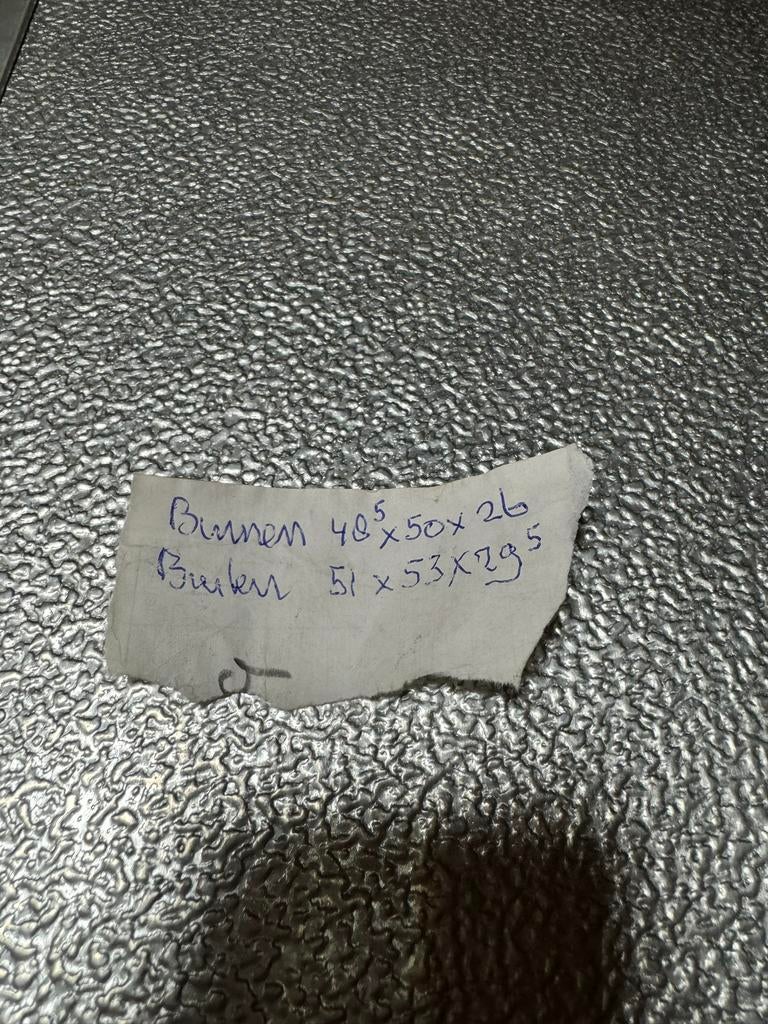 Binnen 48⁵ x 50 x 26
Buiten 51 x 53 x 29⁵